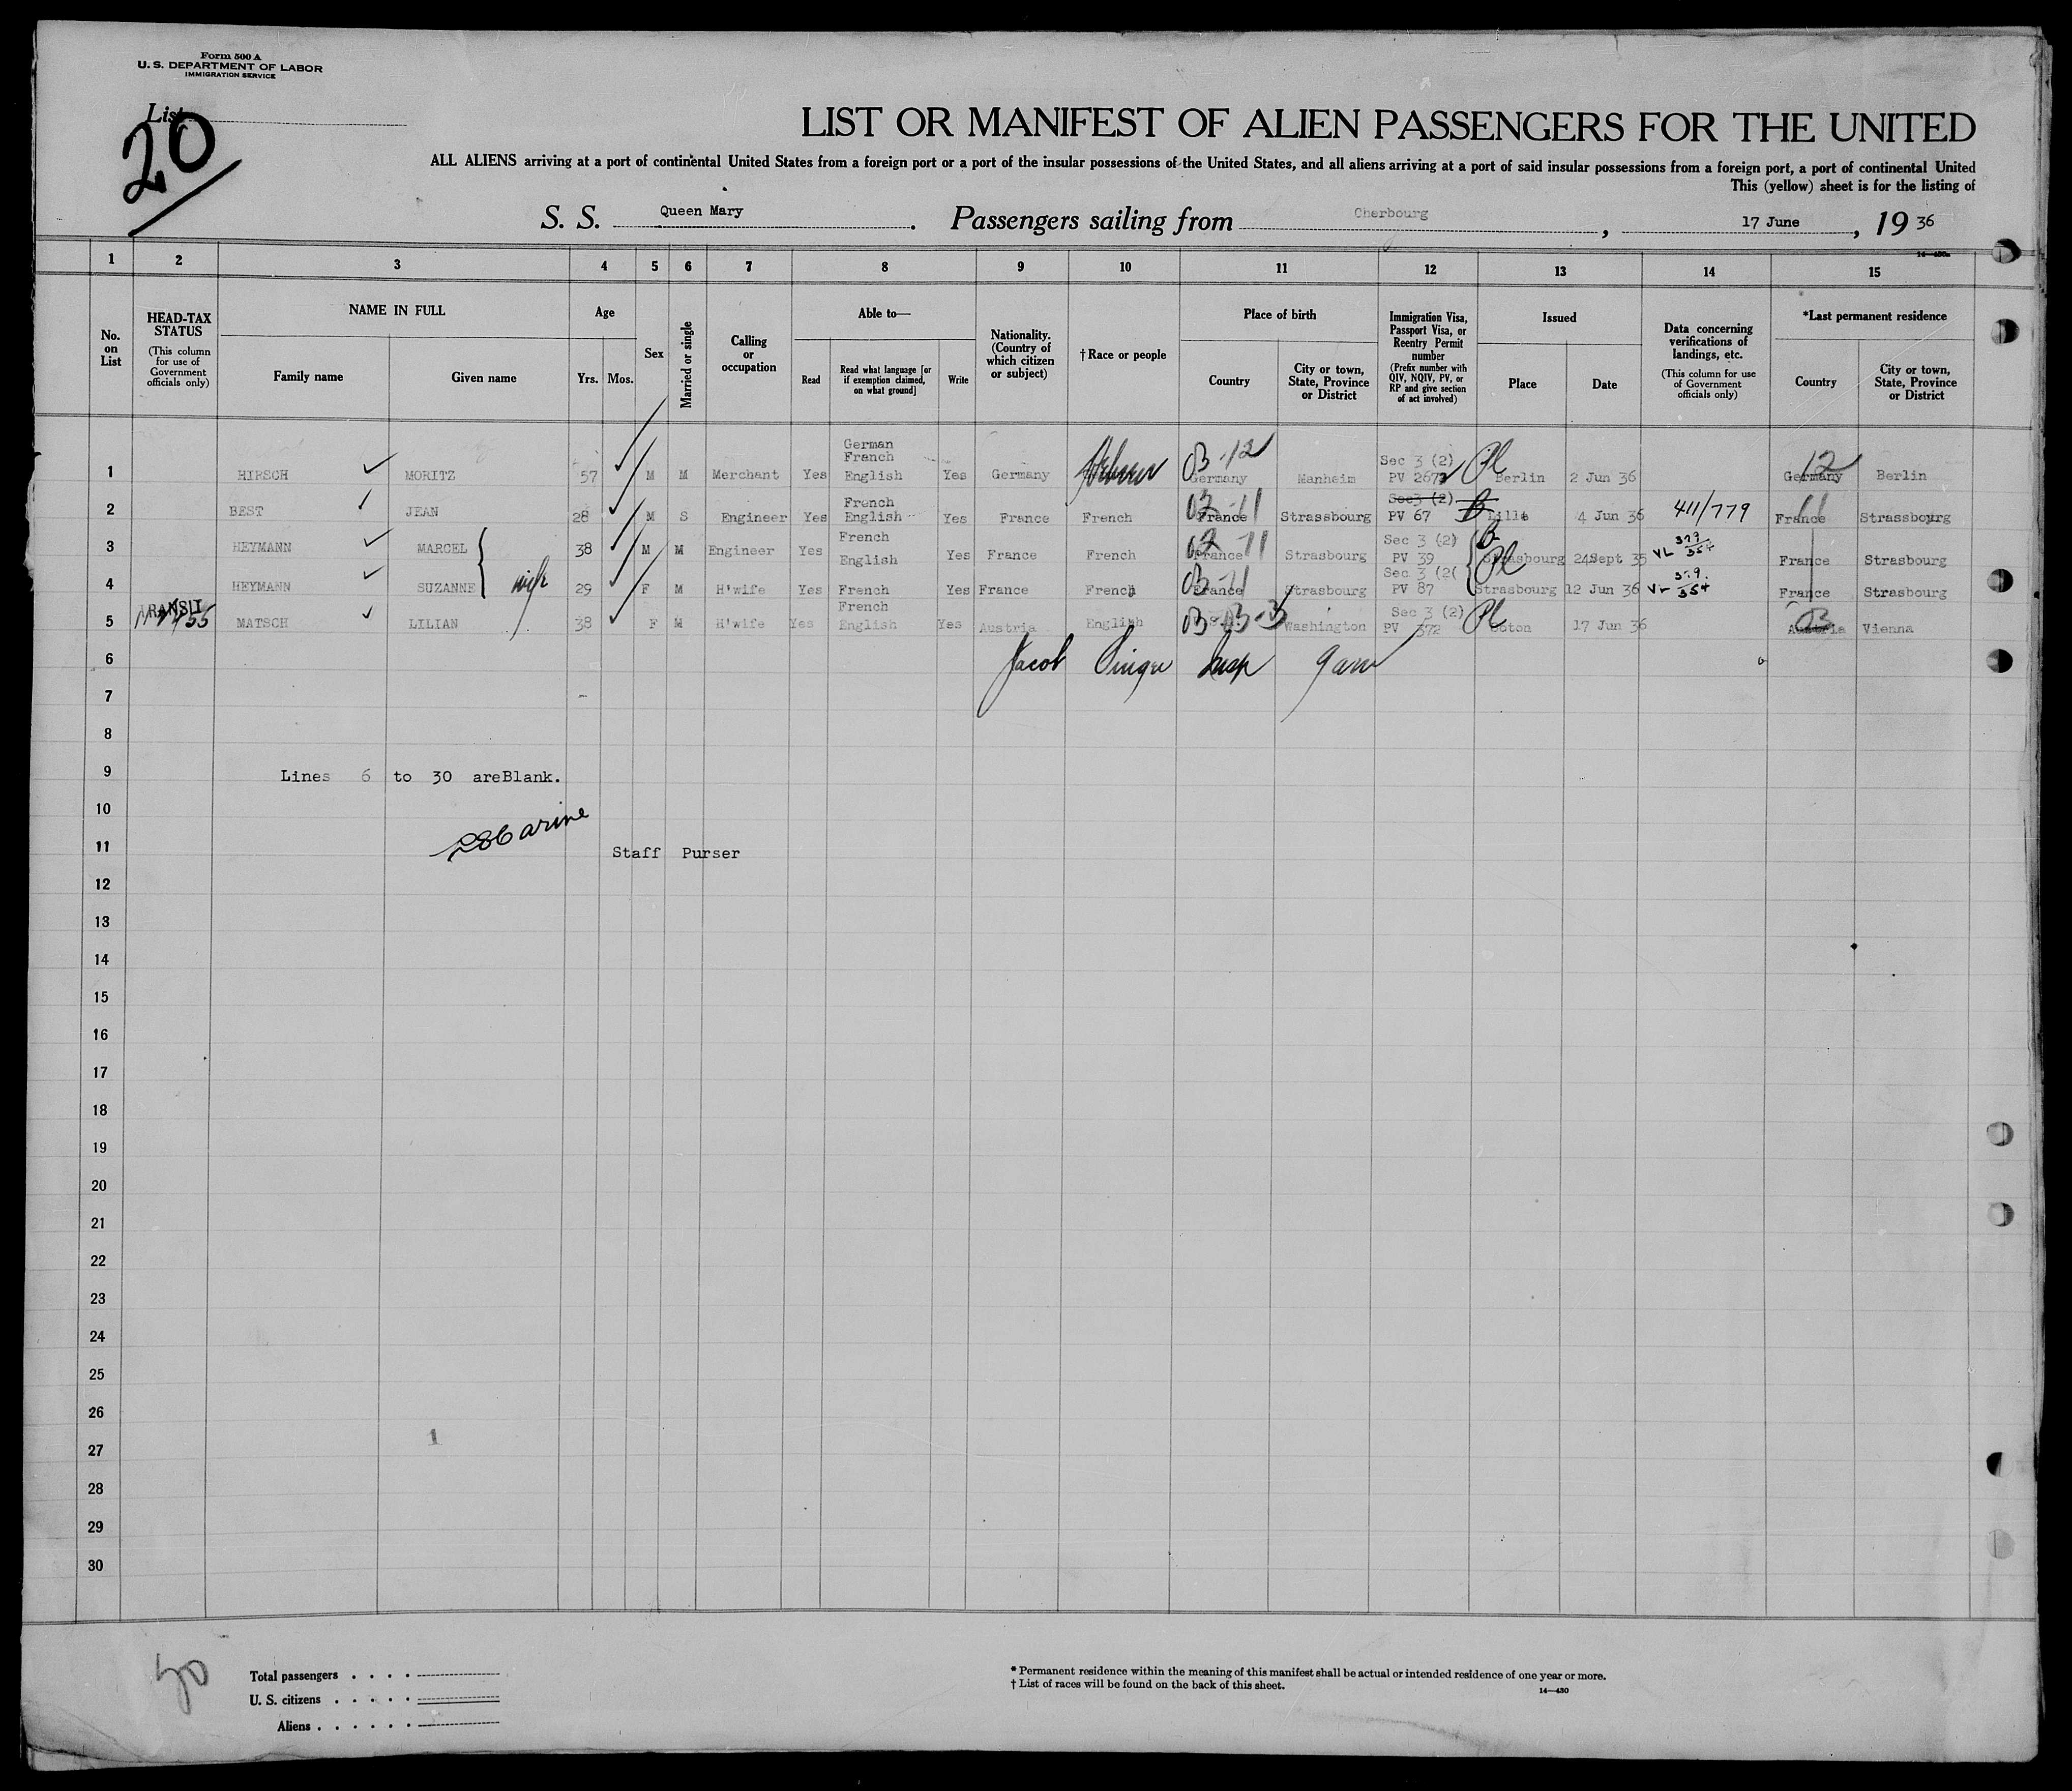 Form 500 A
U. S. DEPARTMENT OF LABOR
IMMIGRATION SERVICE
List
20
LIST OR MANIFEST OF ALIEN PASSENGERS FOR THE UNITED
ALL ALIENS arriving at a port of continental United States from a foreign port or a port of the insular possessions of the United States, and all aliens arriving at a port of said insular possessions from a foreign port, a port of continental United
This (yellow) sheet is for the listing of
S. S. Queen Mary. Passengers sailing from Cherbourg, 17 June, 19 36
1 2 3 4 5 6 7 8 9 10 11 12 13 14 15
No. on List
HEAD-TAX STATUS (This column for use of Government officials only)
NAME IN FULL Family name Given name
Age Yrs. Mos.
Sex
Married or single
Calling or occupation
Able to— Read Read what language [or if exemption claimed, on what ground] Write
Nationality. (Country of which citizen or subject)
† Race or people
Place of birth Country City or town, State, Province or District
Immigration Visa, Passport Visa, or Reentry Permit number (Prefix number with QIV, NQIV, PV, or RP and give section of act involved)
Issued Place Date
Data concerning verifications of landings, etc. (This column for use of Government officials only)
*Last permanent residence Country City or town, State, Province or District
1 HIRSCH MORITZ 57 M M Merchant Yes German French English Yes Germany Hebrew 03-12 Germany Manheim Sec 3 (2) PV 2673 Pl Berlin 2 Jun 36 12 Germany Berlin
2 BEST JEAN 28 M S Engineer Yes French English Yes France French 03-11 France Strassbourg Sec3 (2) PV 67 Lille 4 Jun 36 411/779 11 France Strassbourg
3 HEYMANN MARCEL 38 M M Engineer Yes French English Yes France French France Strasbourg Sec 3 (2) PV 39 Strasbourg 24Sept 35 VL France Strasbourg
4 HEYMANN SUZANNE wife 29 F M H'wife Yes French Yes France French 03-11 France Strasbourg Sec 3 (2( PV 87 Pl Strasbourg 12 Jun 36 France Strasbourg
TRANSIT
5 MATSCH LILIAN 38 F M H'wife Yes French English Yes Austria English Washington Sec 3 (2) PV 372 Pl 17 Jun 36 03 Austria Vienna
6 Jacob Insp
7
8
9 Lines 6 to 30 areBlank.
10
11 Staff Purser
12
13
14
15
16
17
18
19
20
21
22
23
24
25
26
1
27
28
29
30
50
Total passengers . . . .
U. S. citizens . . . . .
Aliens . . . . . .
* Permanent residence within the meaning of this manifest shall be actual or intended residence of one year or more.
† List of races will be found on the back of this sheet.
14—430